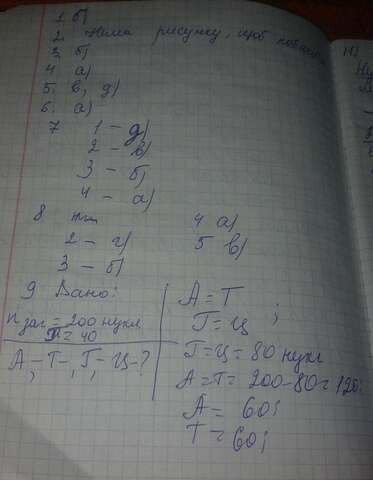 1 б)
2. Нема рисунку, щоб
3 б)
4 а)
5. в, д)
6. а)
7 1 – д)
2 – в)
3 – б)
4 – а)
8
2 – г)
3 – б)
4 а)
5 в)
9 Дано:
n заг = 200 нукл
= 40
А –, Т –, Г –, Ц – ?
А = Т ;
Г = Ц
Г = Ц = 80 нукл
А = Т = 200 – 80 = 120;
А = 60;
Т = 60;